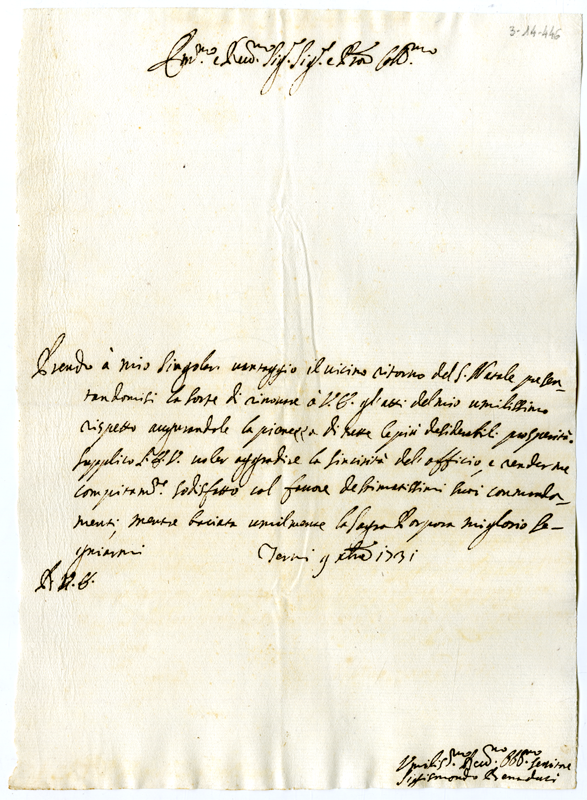 3-14-446
Em.mo e Rev.mo Sig.r Sig.r e Pron Coll.mo
Prendo à mio singolar vantaggio il vicino ritorno del S. Natale presen-
tandomisi la sorte di rinovare à V.E. gli atti del mio umilissimo
rispetto augurandole la pienezza di tutte le più desiderabili prosperità.
Supplico l'E.V. voler aggradire la sincerità dell'officio, e render me
compitam.te sodisfatto col favore de stimatissimi suoi commanda-
menti, mentre baciata umilmente la Sagra Porpora mi glorio se-
gniarmi Terni 9 Xbre 1731
D. V. E.
Umilis.mo Dev.mo Obb.mo Servitore
Sigismondo